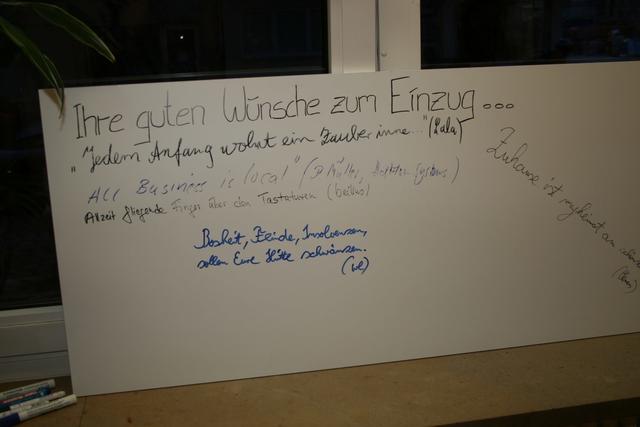 Ihre guten Wünsche zum Einzug...
"Jedem Anfang wohnt ein Zauber inne..." (Lala)
All Business is local" (D. Müller, Systems)
Allzeit fliegende Finger über den Tastaturen
Bosheit, Feinde, Insolvenzen,
sollen Eure Hütte schwänzen.
Zuhause ist am